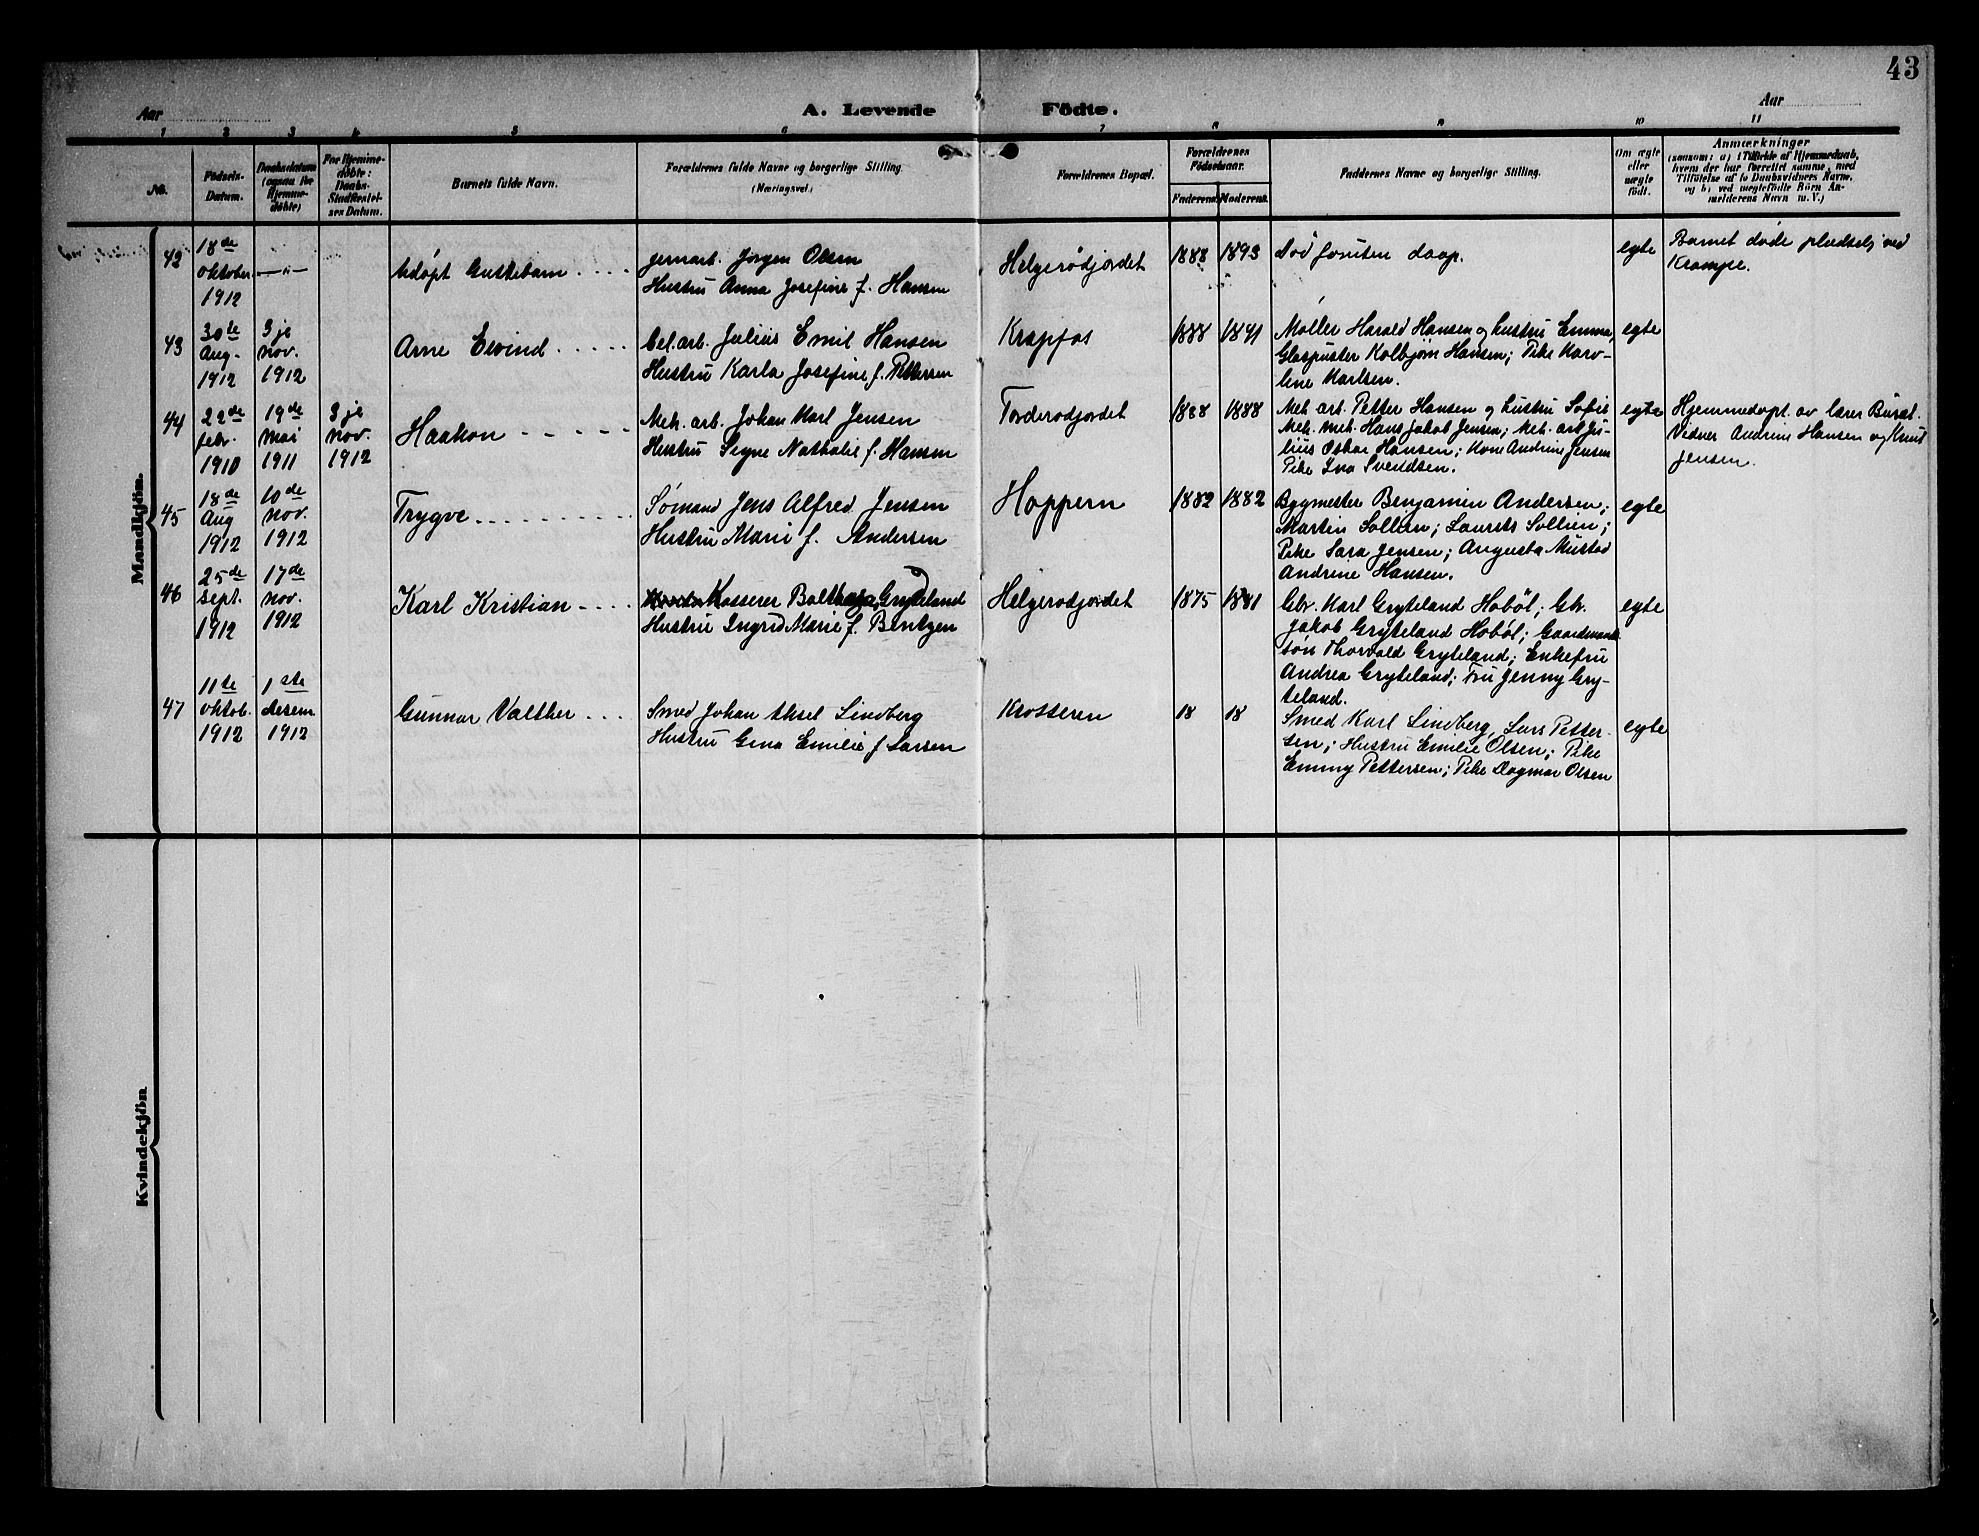 43
Aar
A. Levende Födte.
Aar
1 2 3 4 5 6 7 8 9 10 11
No.
Födsels-
Datum.
Daabsdatum
(ogsaa for
Hjemme-
döbte)
For Hjemme-
döbte:
Daabs-
Stadfæstel-
ses Datum.
Barnets fulde Navn.
Forældrenes fulde Navne og borgerlige Stilling
(Næringsvei)
Forældrenes Bopæl.
Forældrenes
Födselsaar.
Faderens
Moderens.
Faddernes Navne og borgerlige Stilling.
Om ægte
eller
uægte
födt.
Anmærkninger
(saasom: a) i Tilfælde af Hjemmedaab,
hvem der har forrettet samme, med
Tilföielse af to Daabsvidners Navne,
og b) ved uegtefödte Börn An-
melderens Navn m. V.)
Mandkjön.
42
18de
oktober
1912
— " —
Udøpt Guttebarn
jernarb. Jörgen Olsen
Hustru Anna Josefine f. Hansen
Helgerödjordet
1888
1893
Död foruten daap.
egte
Barnet døde pludselig ved
Krampe.
43
30te
Aug.
1912
3je
nov.
1912
Arne Eivind
bel.arb. Julius Emil Hansen
Hustru Karla Josefine f. Pettersen
Krapfos
1888
1891
Møller Harald Hansen og hustru Emma,
Glaspuster Kolbjørn Hansen; Pike Karo-
line Karlsen.
egte
44
22de
febr.
1910
19de
Mai
1911
3je
nov.
1912
Haakon
Mek. arb. Johan Karl Jensen
Hustru Signe Nathalie f. Hansen
Torderodjordet
1888
1888
Mek. arb. Petter Hansen og hustru Sofie
Mek. mek. Hans Jakob Jensen; Mek. arb Ju-
lius Oskar Hansen; Kone Andrine Jensen
Pike Ina Svendsen.
egte
Hjemmedöpt. av lærer Burat.
Vidner Andrine Hansen og Knut
Jensen.
45
18de
Aug
1912
10de
nov.
1912
Trygve
Sømand Jens Alfred Jensen
Hustru Marie f. Andersen
Hoppern
1882
1882
Bygmester Benjamin Andersen;
Martin Sollien; Laurits Sollien;
Pike Sara Jensen; Augusta Mustad
Andrine Hansen.
egte
46
25de
sept.
1912
17de
nov.
1912
Karl Kristian
Kasserer Balthasar Gryteland
Hustru Ingrid Marie f. Bentzen
Helgerodjordet
1875
1881
Gbr. Karl Gryteland Hobøl; Gbr.
Jakob Gryteland Hobøl; Gaardmands
søn Thorvald Gryteland; Enkefru
Andrea Gryteland; Fru Jenny Gry-
teland.
egte
47
11te
oktob.
1912
1ste
desem
1912
Gunnar Valther
Smed Johan Aksel Lindberg
Hustru Gina Emilie f Larsen
Krosseren
18
18
Smed Karl Lindberg, Lars Petter-
sen; Hustru Emilie Olsen; Pike
Emmy Pettersen; Pike Dagmar Olsen
egte
Kvindekjön